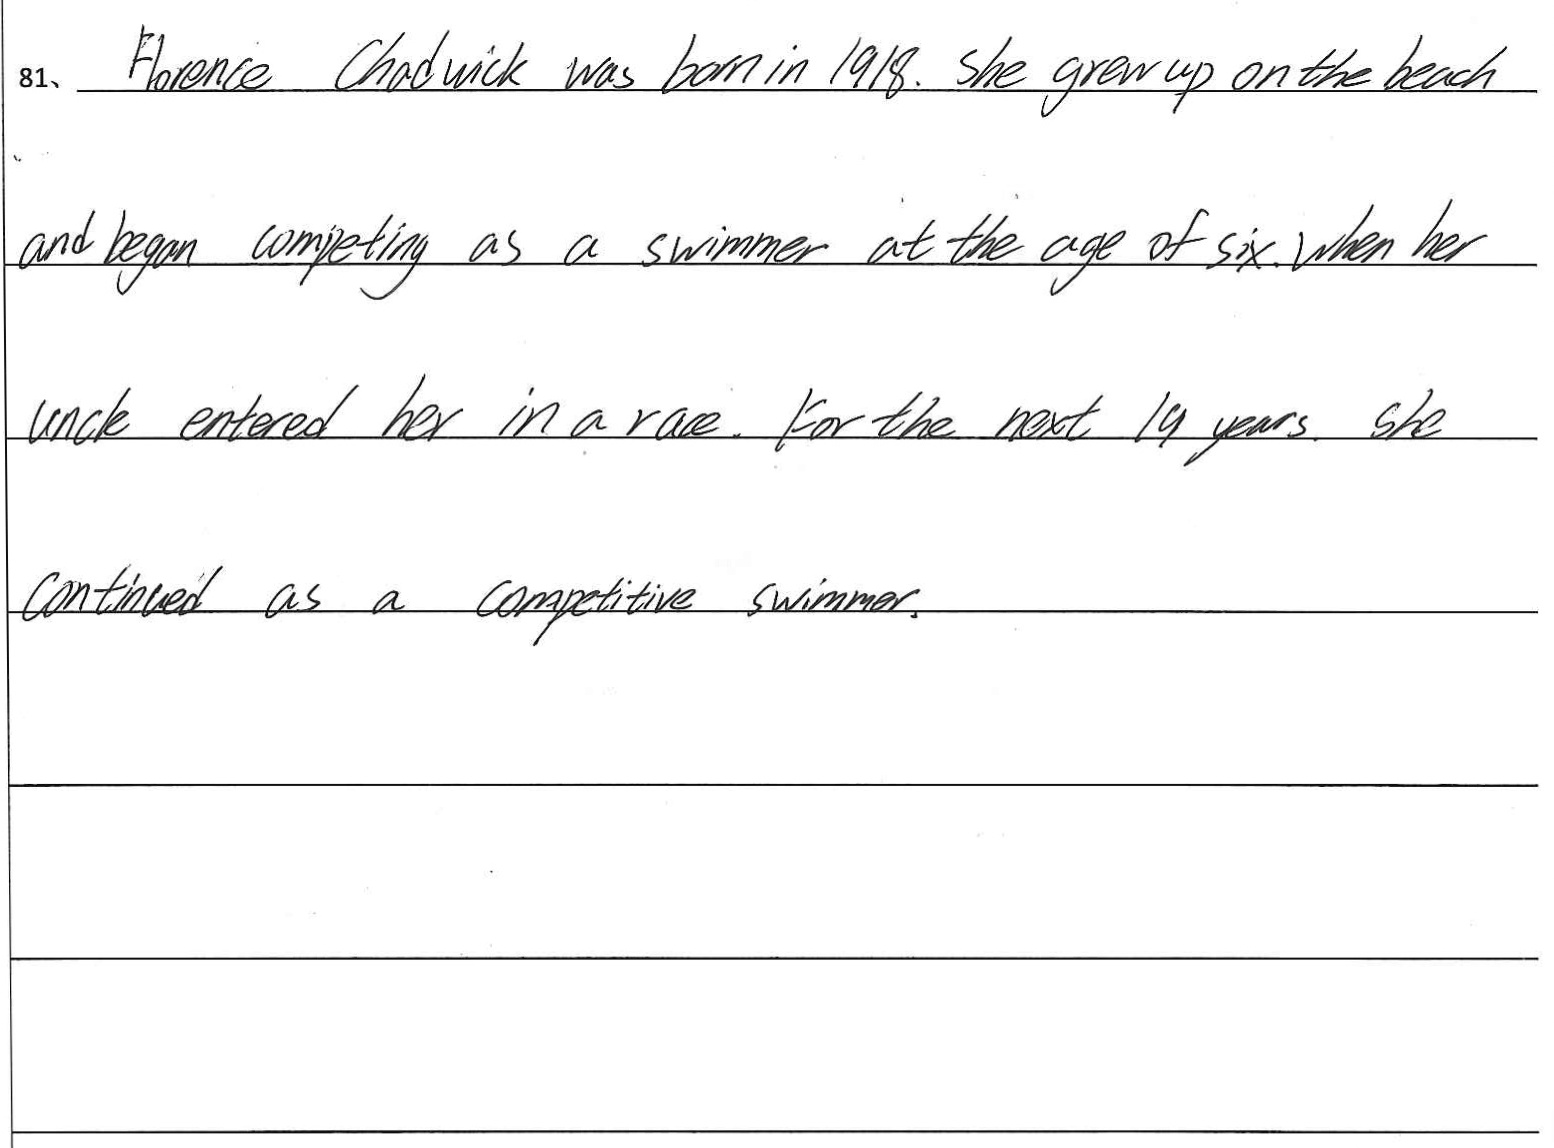 81、 Florence Chadwick was born in 1918. She grew up on the beach
and began competing as a swimmer at the age of six. When her
uncle entered her in a race. For the next 19 years. She
continued as a competitive swimmer.